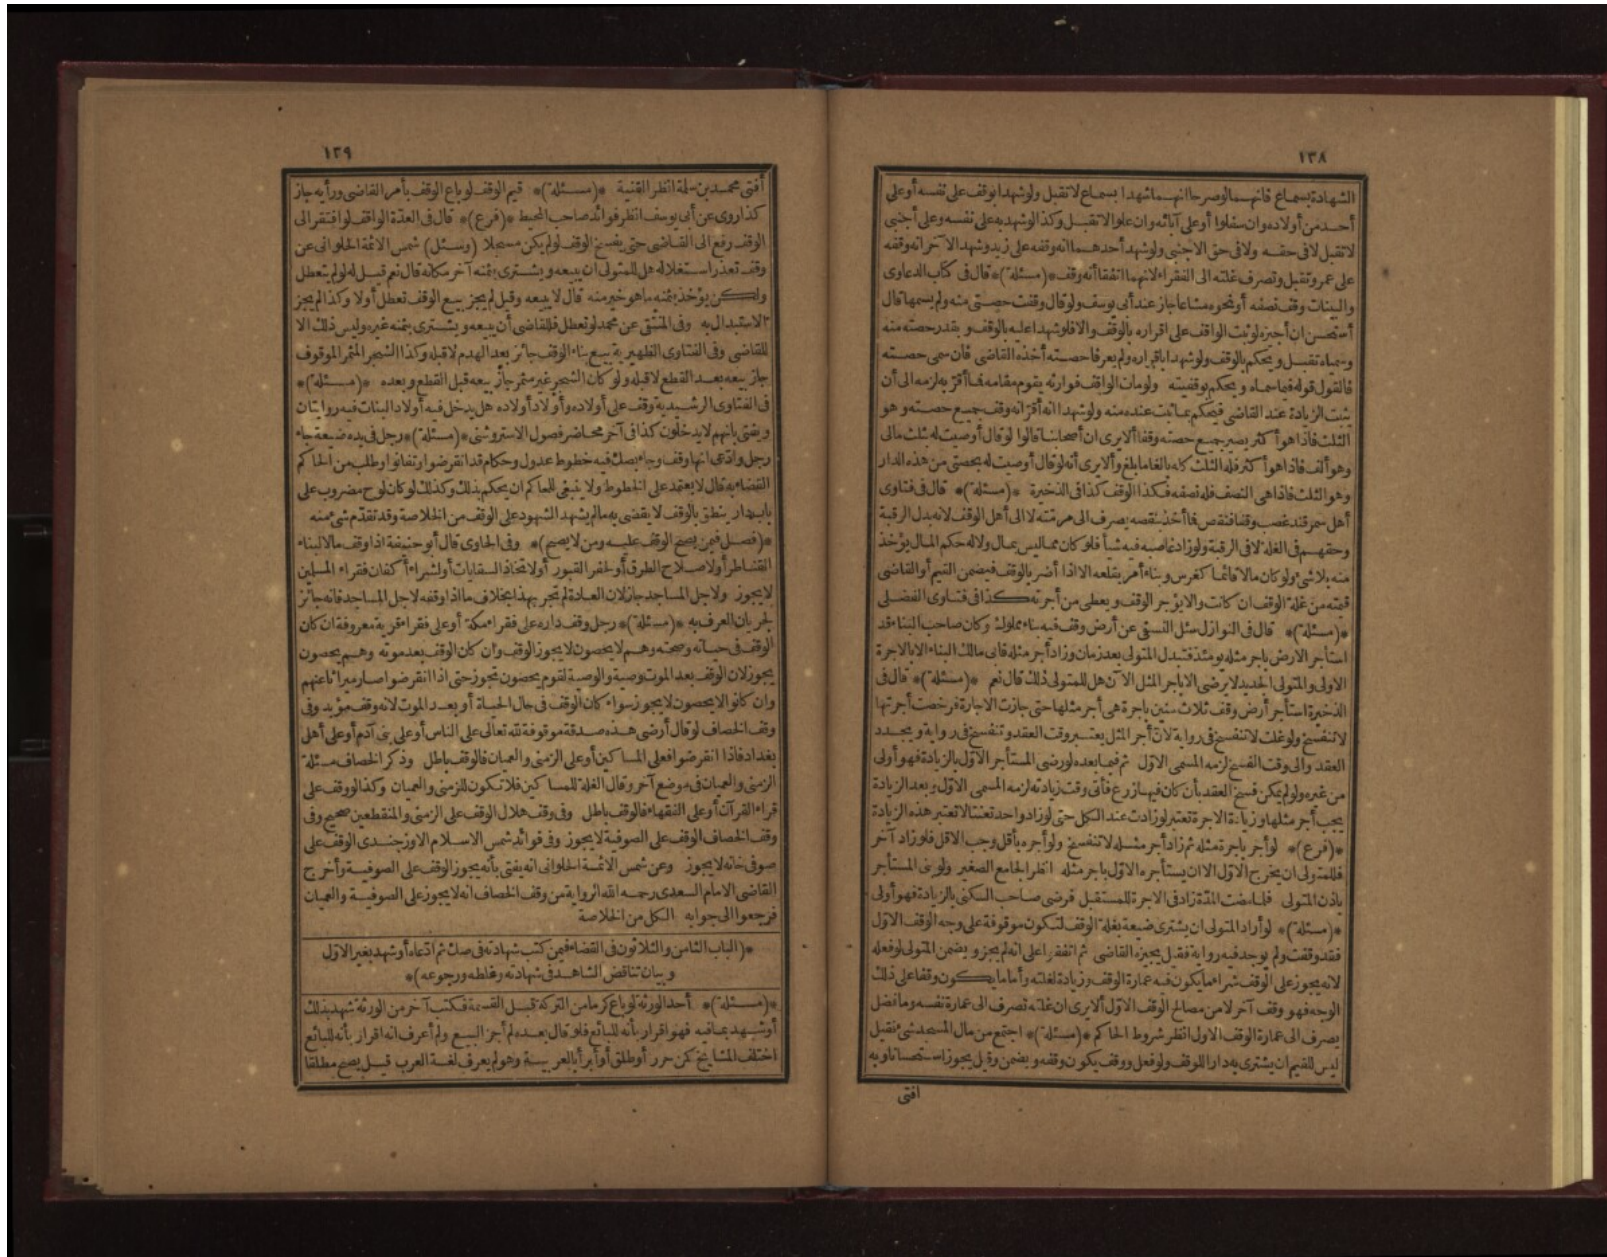 ١٣٨
الشهادة بسماع فانهما لو صرحا انهما شهدا بسماع لا تقبل ولو شهدا بوقف على نفسه أو على
أحد من أولاده وان سفلوا أو على آبائه وان علوا لا تقبل وكذا لو شهد به على نفسه وعلى أجنبي
لا تقبل لا فى حقه ولا فى حق الاجنبي ولو شهد أحدهما انه وقفه على زيد وشهد الآخر انه وقفه
على عمرو تقبل وتصرف غلته الى الفقراء لانهما اتفقا أنه وقف *(مسئلة)* قال فى كتاب الدعاوى
والبينات وقف نصفه أو نحوه مشاعا جاز عند أبى يوسف ولو قال وقفت حصتى منه ولم يسمها قال
أستحسن ان أجيزه لو ثبت الواقف على اقراره بالوقف والا فلو شهدا عليه بالوقف وبقدر حصته منه
وسمياه تقبل ويحكم بالوقف ولو شهدا باقراره ولم يعرفا حصته أخذه القاضى فان سمى حصته
فالقول قوله فيما سماه ويحكم بوقفيته ولو مات الواقف فوارثه يقوم مقامه فما أقر به لزمه الى أن
يثبت الزيادة عند القاضى فيحكم بما ثبت عنده منه ولو شهدا انه أقر انه وقف جميع حصته وهو
الثلث فاذا هو أكثر يصير جميع حصته وقفا ألا يرى ان أصحابنا قالوا لو قال أوصيت له بثلث مالى
وهو ألف فاذا هو أكثر فله الثلث كله بالغا ما بلغ وألا يرى أنه لو قال أوصيت له بحصتى من هذه الدار
وهو الثلث فاذا هى النصف فله نصفه فكذا الوقف كذا فى الذخيرة *(مسئلة)* قال فى فتاوى
أهل سمرقند غصب وقفا فنقص فما أخذ بنقصه يصرف الى مرمته لا الى أهل الوقف لانه بدل الرقبة
وحقهم فى الغلة لا فى الرقبة ولو زاد غاصبه فيه شيأ فلو كان مما ليس بمال ولا له حكم المال يؤخذ
منه بلا شئ ولو كان مالا قائما كغرس وبناء أمر بقلعه الا اذا أضر بالوقف فيضمن القيم أو القاضى
قيمته من غلة الوقف ان كانت والا يؤجر الوقف ويعطى من أجرته كذا فى فتاوى الفضلى
*(مسئلة)* قال فى النوازل سئل النسفى عن أرض وقف فيه بناء مملوك وكان صاحب البناء قد
استأجر الارض باجر مثله يومئذ فتبدل المتولى بعد زمان وزاد أجر مثله فابى مالك البناء الا بالاجرة
الاولى والمتولى الجديد لا يرضى الا باجر المثل الآن هل للمتولى ذلك قال نعم *(مسئلة)* قال فى
الذخيرة استأجر أرض وقف ثلاث سنين باجرة هى أجر مثلها حتى جازت الاجارة فرخصت أجرتها
لا تنفسخ ولو غلت لا تنفسخ فى رواية لان أجر المثل يعتبر وقت العقد وتنفسخ فى رواية ويجدد
العقد والى وقت الفسخ لزمه المسمى الاول ثم فيما بعده لو رضى المستأجر الاول بالزيادة فهو أولى
من غيره ولو لم يمكن فسخ العقد بأن كان فيها زرع فأتى وقت زيادته لزمه المسمى الاول وبعد الزيادة
يجب أجر مثلها وزيادة الاجرة تعتبر لو زادت عند الكل حتى لو زاد واحد تعنتا لا تعتبر هذه الزيادة
*(فرع)* لو أجر باجرة مثله ثم زاد أجر مثله لا تنفسخ ولو أجره بأقل وجب الاقل فلو زاد آخر
فللمتولى ان يخرج الاول الا ان يستأجره الاول باجر مثله انظر الجامع الصغير ولو بنى المستأجر
باذن المتولى فلما مضت المدة زاد فى الاجرة للمستقبل فرضى صاحب السكنى بالزيادة فهو أولى
*(مسئلة)* لو أراد المتولى ان يشترى ضيعة بغلة الوقف لتكون موقوفة على وجه الوقف الاول
فقد وقفت ولم يوجد فيه رواية فقيل يجيزه القاضى ثم اتفقوا على انه لم يجز ويضمن المتولى لو فعله
لانه يجوز على الوقف شراء ما يكون فيه عمارة الوقف وزيادة لغلته وأما ما يكون وقفا على ذلك
الوجه فهو وقف آخر لا من مصالح الوقف الاول ألا يرى ان غلته تصرف الى عمارة نفسه وما فضل
يصرف الى عمارة الوقف الاول انظر شروط الحاكم *(مسئلة)* اجتمع من مال المسجد شئ فقيل
ليس للقيم ان يشترى به دارا للوقف ولو فعل ووقف يكون وقفه ويضمن وقيل يجوز استحسانا وبه
افتى
١٣٩
أفتى محمد بن سلمة انظر القنية *(مسئلة)* قيم الوقف لو باع الوقف بأمر القاضى ورأيه جاز
كذا روى عن أبى يوسف انظر فوائد صاحب المحيط *(فرع)* قال فى العدة الواقف لو افتقر الى
الوقف رفع الى القاضى حتى يفسخ الوقف لو لم يكن مسجلا (وسئل) شمس الائمة الحلوانى عن
وقف تعذر استغلاله هل للمتولى ان يبيعه ويشترى بثمنه آخر مكانه قال نعم قيل له لو لم يتعطل
ولكن يؤخذ بثمنه ما هو خير منه قال لا يبيعه وقيل لم يجز بيع الوقف تعطل أولا وكذا لم يجز
الاستبدال به وفى المنتقى عن محمد لو تعطل فللقاضى أن يبيعه ويشترى بثمنه غيره وليس ذلك الا
للقاضى وفى الفتاوى الظهيرية بيع بناء الوقف جائز بعد الهدم لا قبله وكذا الشجر المثمر الموقوف
جاز بيعه بعد القطع لا قبله ولو كان الشجر غير مثمر جاز بيعه قبل القطع وبعده *(مسئلة)*
فى الفتاوى الرشيدية وقف على أولاده وأولاد أولاده هل يدخل فيه أولاد البنات فيه روايتان
ويفتى بانهم لا يدخلون كذا فى آخر محاضر فصول الاستروشنى *(مسئلة)* رجل فى يده ضيعة جاء
رجل وادعى انها وقف وجاء بصك فيه خطوط عدول وحكام قد انقرضوا وتفانوا وطلب من الحاكم
القضاء به قال لا يعتمد على الخطوط ولا ينبغى للحاكم ان يحكم بذلك وكذلك لو كان لوح مضروب على
باب دار ينطق بالوقف لا يقضى به ما لم يشهد الشهود على الوقف من الخلاصة وقد تقدم شئ منه
*(فصل فيمن يصح الوقف عليه ومن لا يصح)* وفى الحاوى قال أبو حنيفة اذا وقف مالا لبناء
القناطر أو لاصلاح الطرق أو لحفر القبور أو لاتخاذ السقايات أو لشراء أكفان فقراء المسلمين
لا يجوز ولاجل المساجد جاز لان العادة لم تجر بهذا بخلاف ما اذا وقفه لاجل المساجد فانه جائز
لجريان العرف به *(مسئلة)* رجل وقف داره على فقراء مكة أو على فقراء قرية معروفة ان كان
الوقف فى حياته وصحته وهم لا يحصون لا يجوز الوقف وان كان الوقف بعد موته وهم يحصون
يجوز لان الوقف بعد الموت وصية والوصية لقوم يحصون تجوز حتى اذا انقرضوا صار ميراثا عنهم
وان كانوا لا يحصون لا يجوز سواء كان الوقف فى حال الحياة أو بعد الموت لانه وقف مؤبد وفى
وقف الخصاف لو قال أرضى هذه صدقة موقوفة لله تعالى على الناس أو على بنى آدم أو على أهل
بغداد فاذا انقرضوا فعلى المساكين أو على الزمنى والعميان فالوقف باطل وذكر الخصاف مسئلة
الزمنى والعميان فى موضع آخر وقال الغلة للمساكين فلا تكون للزمنى والعميان وكذا لو وقف على
قراء القرآن أو على الفقهاء فالوقف باطل وفى وقف هلال الوقف على الزمنى والمنقطعين صحيح وفى
وقف الخصاف الوقف على الصوفية لا يجوز وفى فوائد شمس الاسلام الاوزجندى الوقف على
صوفى خانه لا يجوز وعن شمس الائمة الحلوانى انه يفتى بأنه يجوز الوقف على الصوفية وأخرج
القاضى الامام السعدى رحمه الله الرواية من وقف الخصاف انه لا يجوز على الصوفية والعميان
فرجعوا الى جوابه الكل من الخلاصة
*(الباب الثامن والثلاثون فى القضاء فيمن كتب شهادته فى صك ثم ادعاه أو شهد بغير الاول
وبيان تناقض الشاهد فى شهادته وغلطه ورجوعه)*
*(مسئلة)* أحد الورثة لو باع كرما من التركة قبل القسمة فكتب آخر من الورثة شهد بذلك
أو شهد بما فيه فهو اقرار بأنه للبائع فلو قال بعده لم أجز البيع ولم أعرف انه اقرار بأنه للبائع
اختلف المشايخ كمن حرر أو طلق أو أبرأ بالعربية وهو لم يعرف لغة العرب قيل يصح مطلقا